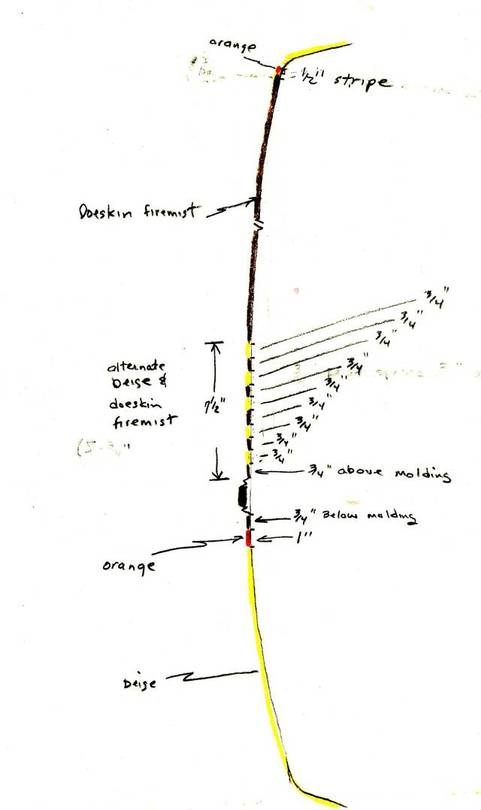 orange
1/2" stripe
Doeskin firemist
3/4"
3/4"
3/4"
3/4"
3/4"
3/4"
3/4"
3/4"
3/4"
alternate
beige &
doeskin
firemist
7 1/2"
3/4" above molding
3/4" Below molding
1"
orange
Beige